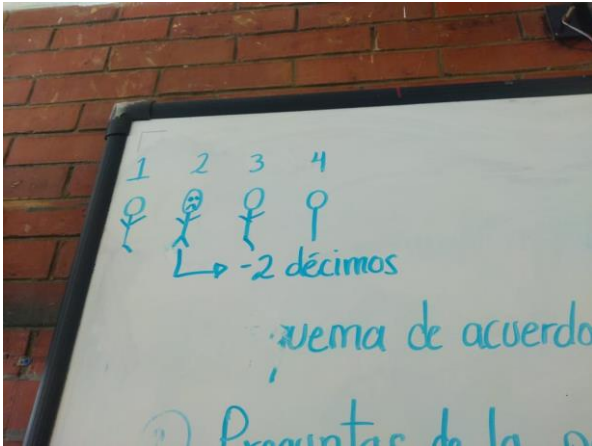 1 2 3 4
-2 décimos
de acuerdo
Preguntas de la